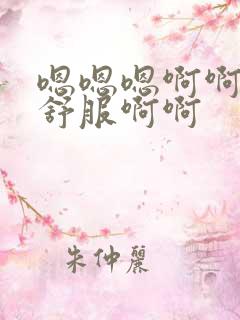 嗯嗯嗯啊啊
舒服啊啊
朱仲丽